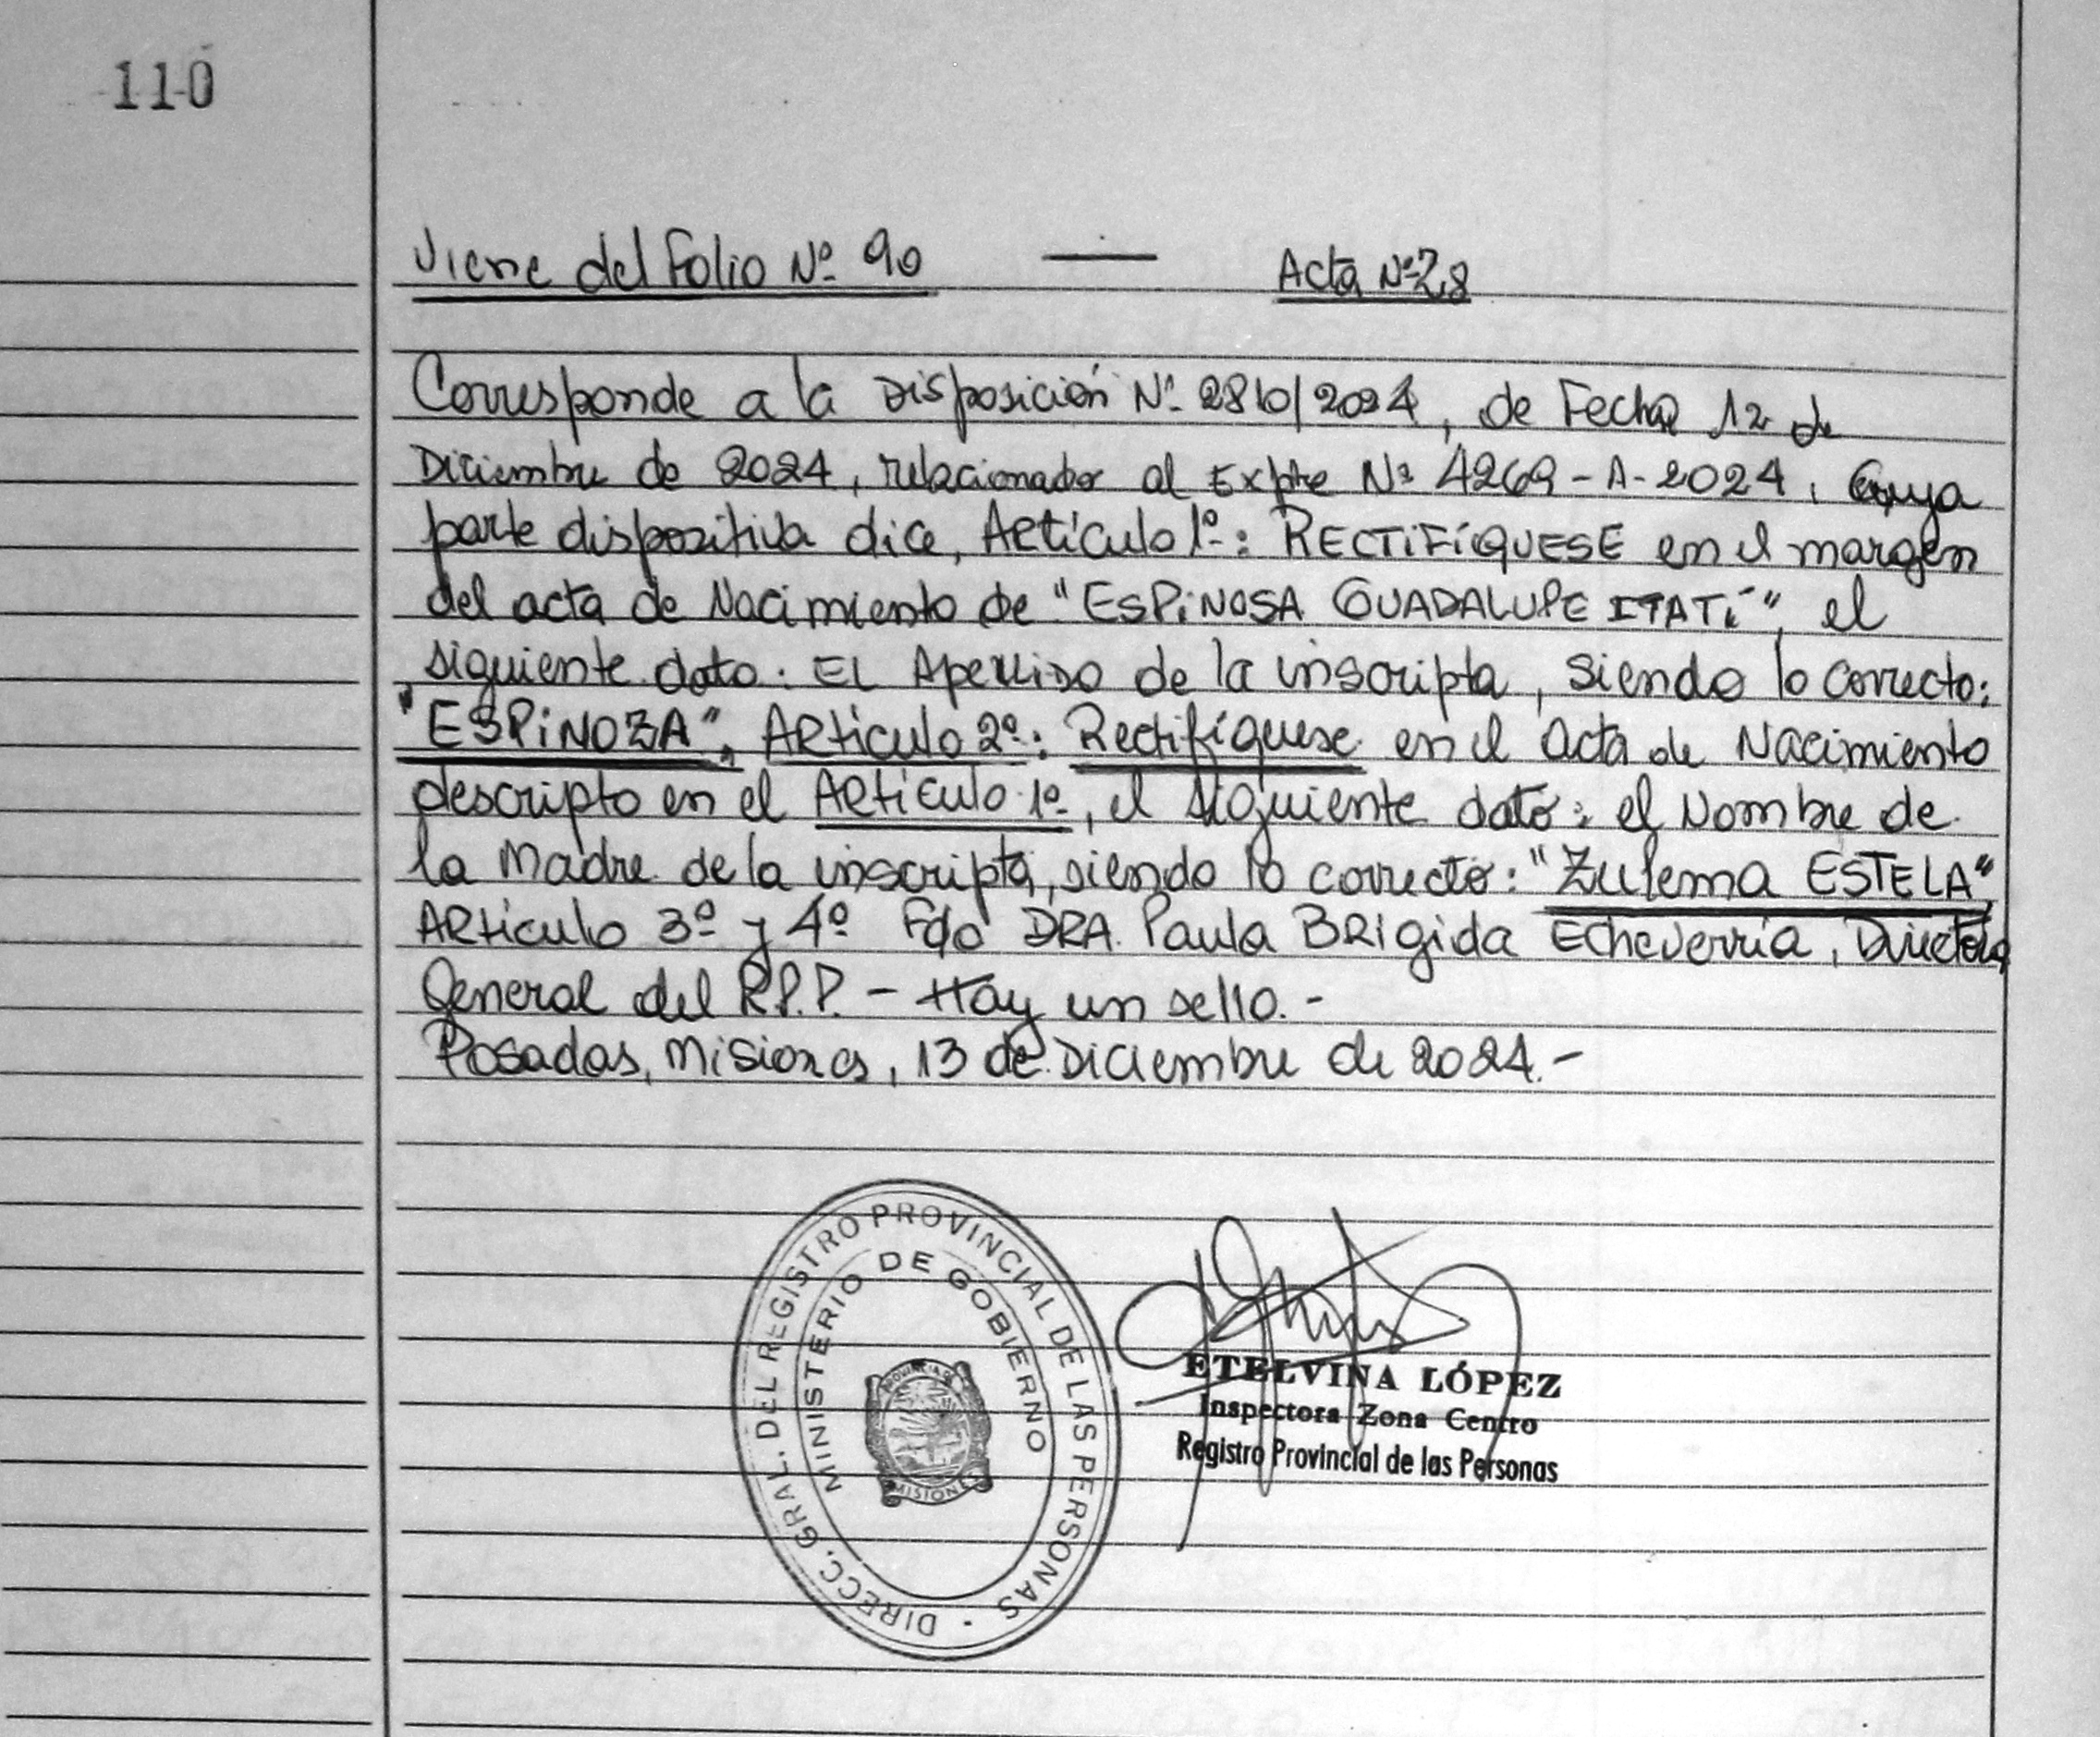 110
Viene del Folio Nº 90 — Acta Nº 28
Corresponde a la Disposición Nº 2810/2024, de Fecha 12 de
Diciembre de 2024, relacionador al Expte Nº 4269-A-2024, Cuya
parte dispositiva dice, Artículo 1º: RECTIFÍQUESE en el margen
del acta de Nacimiento de "ESPINOSA GUADALUPE ITATÍ", el
siguiente dato: EL Apellido de la inscripta, siendo lo correcto:
"ESPINOZA", Artículo 2º: Rectifíquese en el acta de Nacimiento
descripto en el Artículo 1º, el siguiente dato: el Nombre de
la Madre de la inscripta, siendo lo correcto: "Zulema ESTELA"
Artículo 3º y 4º Fdo DRA. Paula BRigida Echeverría, Directora
General del R.P.P. - Hay un sello.-
Posadas, Misiones, 13 de Diciembre de 2024.-
DIRECC. GRAL. DEL REGISTRO PROVINCIAL DE LAS PERSONAS
MINISTERIO DE GOBIERNO
PROVINCIA DE
MISIONES
ETELVINA LÓPEZ
Inspectora Zona Centro
Registro Provincial de las Personas